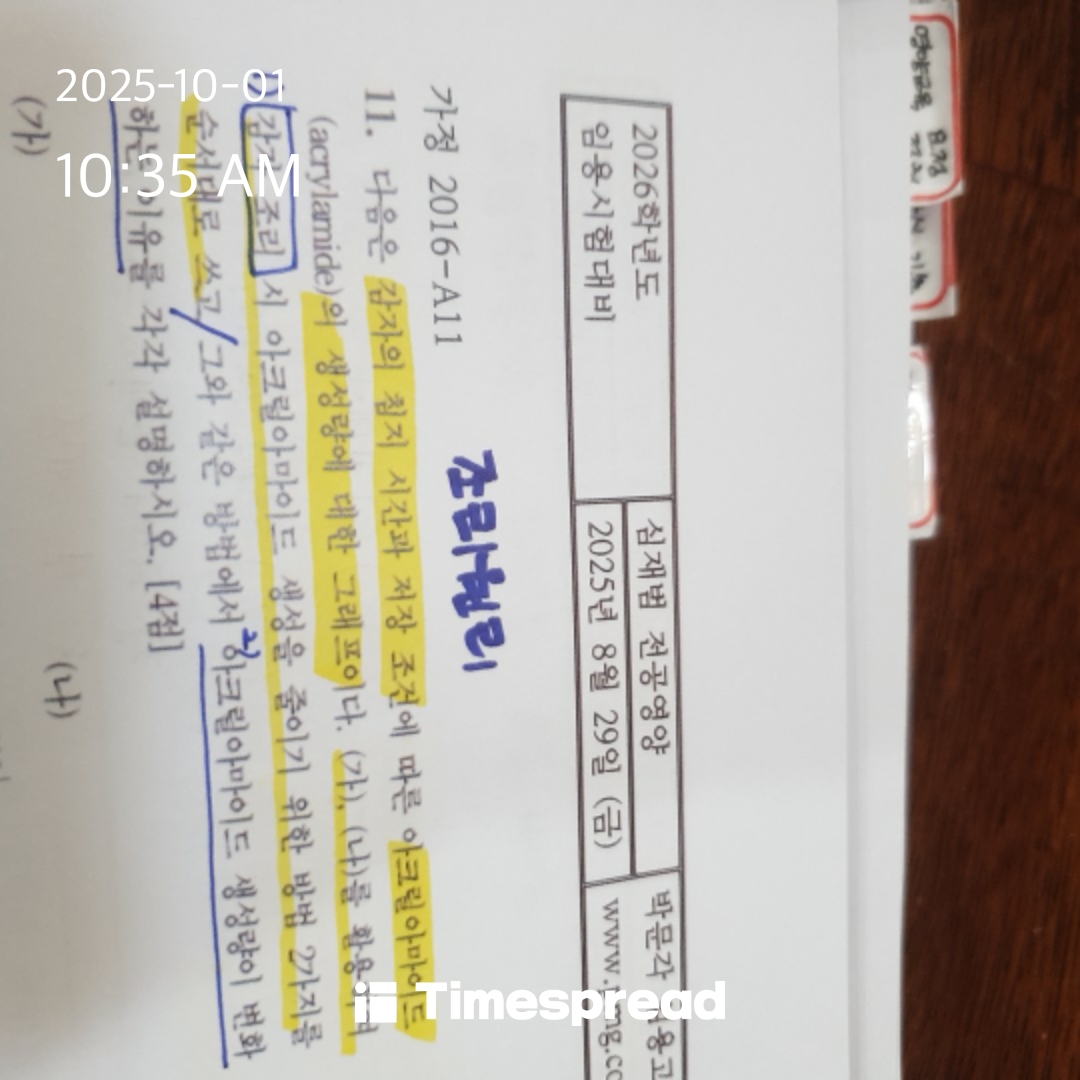 2025-10-01
10:35 AM
2026학년도
임용시험대비
심재범 전공영양
2025년 8월 29일 (금)
박문각
가정 2016-A11
조리원리
11. 다음은 감자의 침지 시간과 저장 조건에 따른 아크릴아마이드
(acrylamide)의 생성량에 대한 그래프이다. (가), (나)를
감자 조리 시 아크릴아마이드 생성을 줄이기 위한 방법 2가지를
순서대로 쓰고, 그와 같은 방법에서 2) 아크릴아마이드 생성량이 변화
하는 이유를 각각 설명하시오. [4점]
(가)
(나)
Timespread